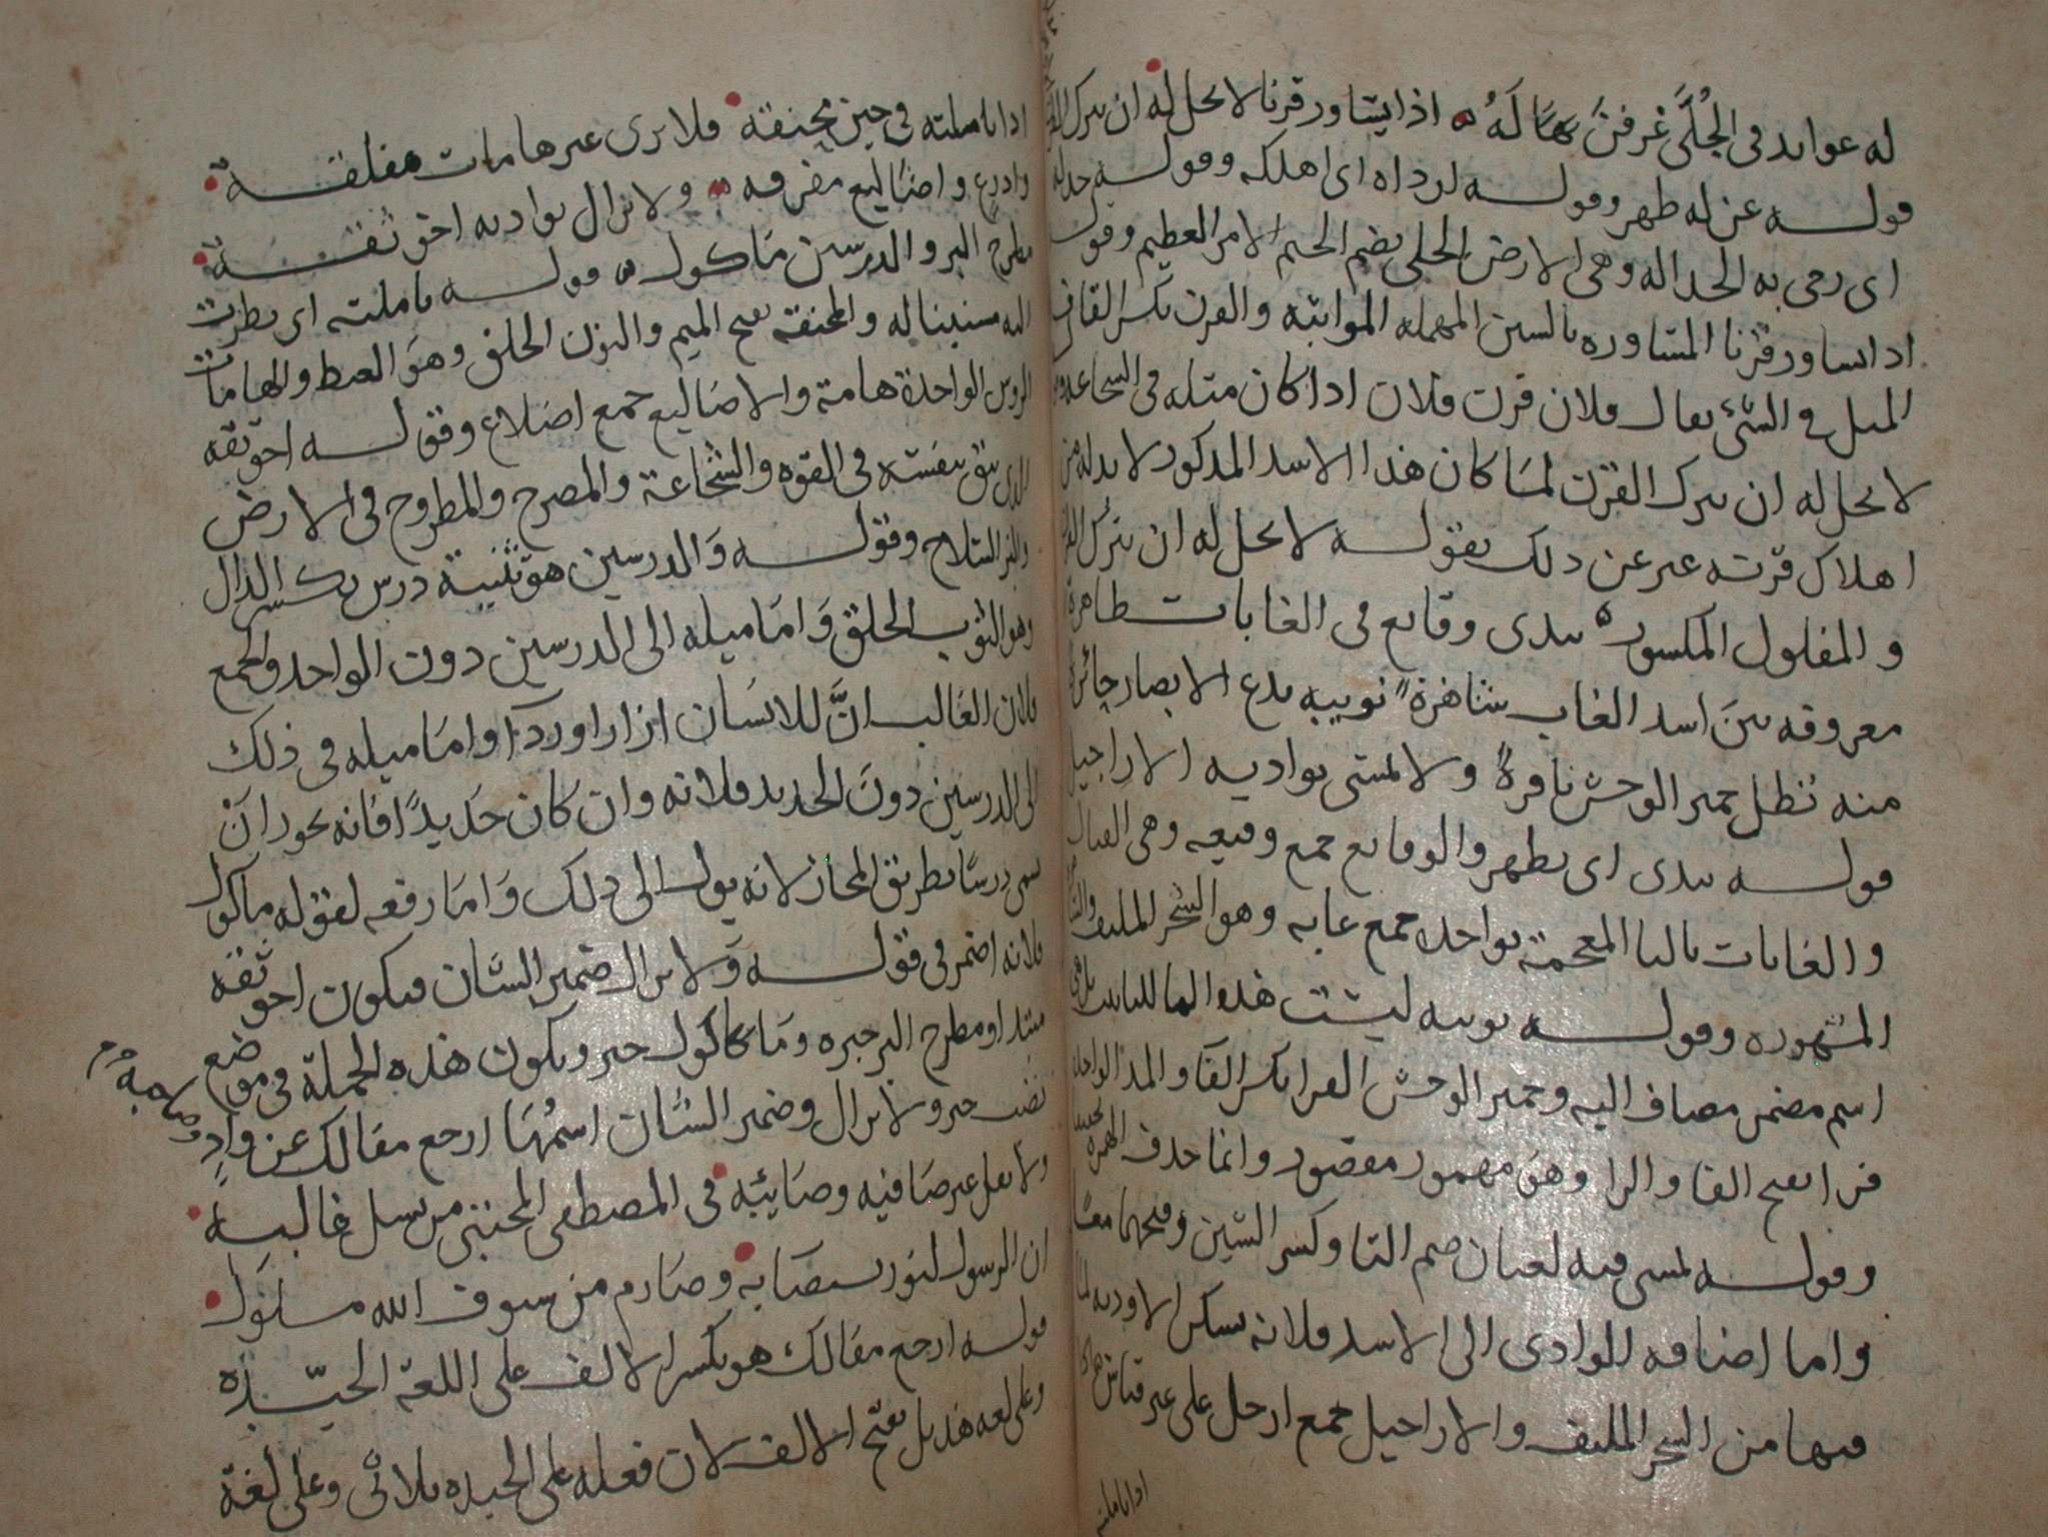 له عوايد في الجُلَّى غرفنَ هَالَهُ اذا يساور قرنا لا يحل له ان يترك
قوله عن له ظهر وقوله لرداه اى اهلكه وقوله جدله
اى رمى به الجداله وهى الارض الجلى بضم الجيم الامر العظيم وقوله
اذا يساور قرنا المساوره بالسين المهمله المواثبه والقرن بكسر القاف
المثل في الشئ يقال فلان قرن فلان اذا كان مثله في الشجاعه
لا يحل له ان يترك القرن لما كان هذا الاسد المذكور لا بد له من
اهلاك قرنه عبر عن ذلك بقوله لا يحل له ان يترك
والمفلول المكسور تبدى وقايع في الغابات ظاهرة
معروفه بين اسد الغاب شاهرة نوبيه يدع الابصار حائرة
منه تظل حمير الوحش نافرة ولا تمشى بواديه الاراجيل
قوله تبدى اى تظهر والوقايع جمع وقيعه وهى القتال
والغابات بالبا المعجمة بواحده جمع غابه وهو الشجر الملتف
المشهوره وقوله نوبيه ليست هذه الها للتانيث بل هى
اسم مضمر مضاف اليه وحمير الوحش الفرا بكسر الفا والمد الواحد
فرا بفتح الفا والرا وهو مهموز مقصور وانما حذف الهمزه
وقوله تمسى فيه لغتان ضم التا وكسر الشين وفتحهما معًا
واما اضافه الوادى الى الاسد فلانه يسكن الاوديه لما
فيها من الشجر الملتف والاراجيل جمع ارجل على غير قياس
اذا تاملته
اذا تاملته في حين مخنقة فلا يرى غير هامات مفلقة
واذرع واضاليع مفرقه ولا يزال بواديه اخو ثقة
مطرح البز والدرسين ماكول قوله تاملته اى نظرت
اليه مستبينا له والمخنقة بفتح الميم والنون الحلق وهو الغيظ والهامات
الروس الواحدة هامة والاضاليع جمع اضلاع وقوله اخو ثقه
الذى يثق بنفسه في القوه والشجاعة والمصرح والمطروح في الارض
والبز السلاح وقوله والدرسين هو تثنية درس بكسر الدال
وهو الثوب الخلق وَامَا ميله الى الدرسين دون الواحد والجمع
فلان الغالب انَّ للانسان ازارا وردآ وامَا ميله في ذلك
الى الدرسين دونَ الحديد فلانه وان كان حَديدًا فانه يجوز انْ
يسمى درسًا بطريق المجاز لانه يول الى ذلك وَامَا رفعه لقوله ماكول
فلانه اضمر في قوله وَلا يزال ضمير الشان فيكون اخو ثقه
مبتدا ومطرح البز خبره ومَا كاكول خبر ويكون هذه الجملة في موضع
نصب خبر ولا يزال وضمير الشان اسمُهَا ارجع مقالك عن وادٍ وصاحبه
ولا تعل غير صَافيه وصَائبه في المصطفى المجتبى من نسل غالبه
ان الرسول لنور يستضا به وصَارم من سيوف الله مسلول
قوله ارجع مقالك هو بكسر الالف على اللغة الجيّده
وعلى لغه هذيل بفتح الالف لان فعله على الجيده ثلاثى وعلى لغة